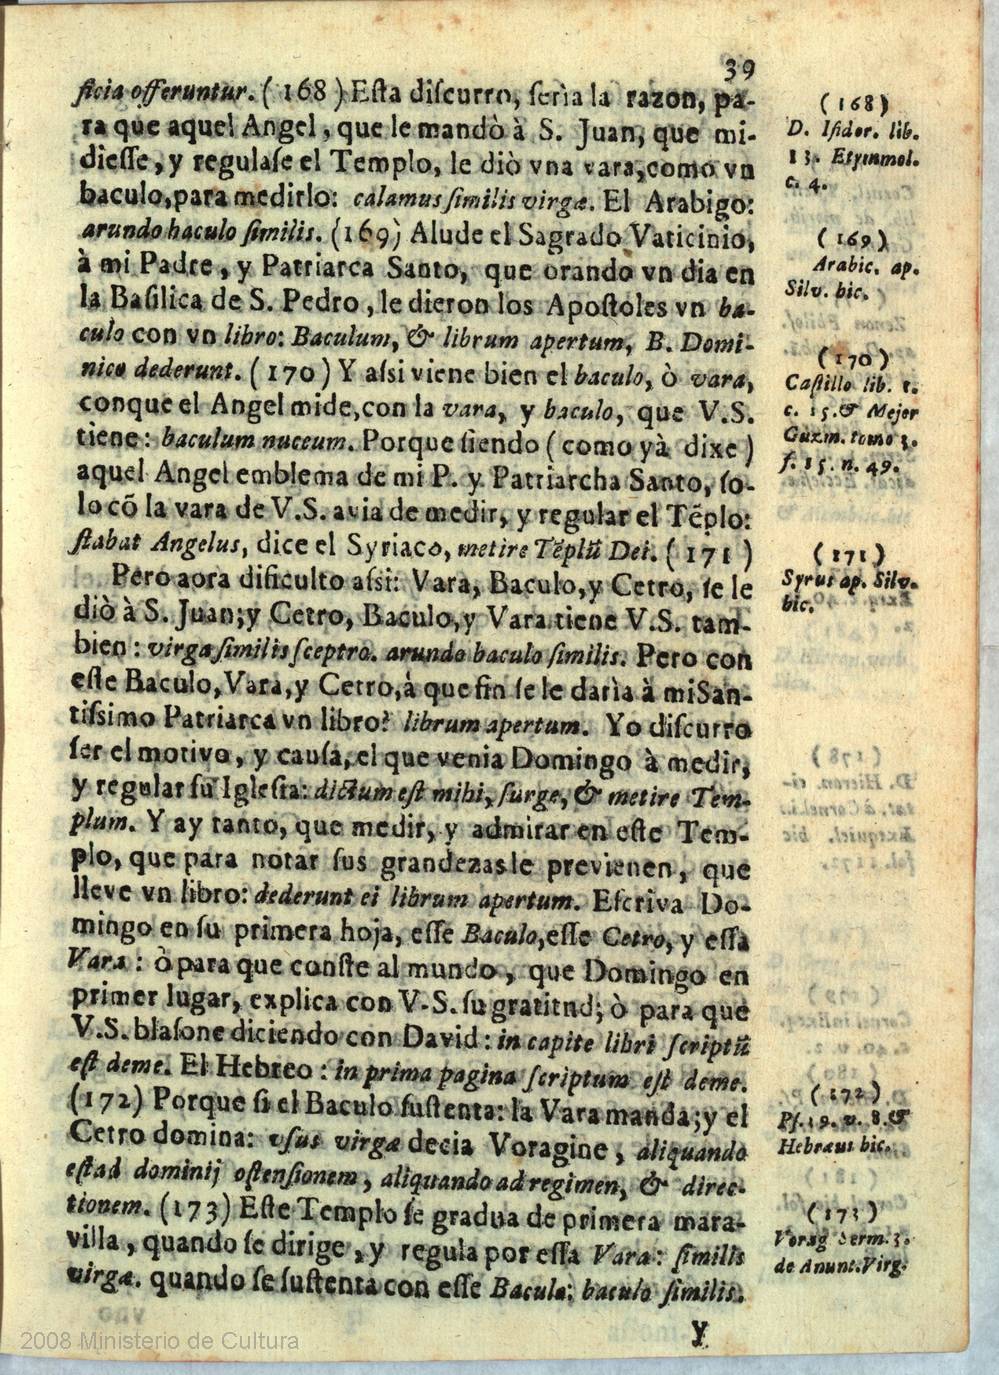 39
ficia offeruntur. (168) Esta discurro, serìa la razon, pa-
ra que aquel Angel, que le mandò à S. Juan, que mi-
diesse, y regulase el Templo, le diò vna vara, como vn
baculo, para medirlo: calamus similis virgæ. El Arabigo:
arundo baculo similis. (169) Alude el Sagrado Vaticinio,
à mi Padre, y Patriarca Santo, que orando vn dia en
la Basilica de S. Pedro, le dieron los Apostoles vn ba-
culo con vn libro: Baculum, & librum apertum, B. Domi-
nico dederunt. (170) Y assi viene bien el baculo, ò vara,
conque el Angel mide, con la vara, y baculo, que V.S.
tiene: baculum nuceum. Porque siendo (como yà dixe)
aquel Angel emblema de mi P. y Patriarcha Santo, so-
lo cõ la vara de V.S. avia de medir, y regular el Tẽplo:
stabat Angelus, dice el Syriaco, metire Tẽplũ Dei. (171)
Pero aora dificulto assi: Vara, Baculo, y Cetro, se le
diò à S. Juan; y Cetro, Baculo, y Vara tiene V.S. tam-
bien: virga similis sceptro. arundo baculo similis. Pero con
este Baculo, Vara, y Cetro, à que fin se le darìa à mi San-
tissimo Patriarca vn libro? librum apertum. Yo discurro
ser el motivo, y causa, el que venia Domingo à medir,
y regular su Iglesia: dictum est mihi, surge, & metire Tem-
plum. Y ay tanto, que medir, y admirar en este Tem-
plo, que para notar sus grandezas le previenen, que
lleve vn libro: dederunt ei librum apertum. Escriva Do-
mingo en su primera hoja, esse Baculo, esse Cetro, y essa
Vara: ò para que conste al mundo, que Domingo en
primer lugar, explica con V.S. su gratitud; ò para que
V.S. blasone diciendo con David: in capite libri scriptũ
est de me. El Hebreo: in prima pagina scriptum est de me.
(172) Porque si el Baculo sustenta: la Vara manda; y el
Cetro domina: vsus virgæ decia Voragine, aliquando
est ad dominij ostensionem, aliquando ad regimen, & direc-
tionem. (173) Este Templo se gradua de primera mara-
villa, quando se dirige, y regula por essa Vara: similis
virgæ. quando se sustenta con esse Baculo; baculo similis.
Y
(168)
D. Isidor. lib.
13. Etymmol.
c. 4.
(169)
Arabic. ap.
Silv. hic.
(170)
Castillo lib. 1.
c. 15. & Mejor
Guzm. tomo 3.
f. 15. n. 49.
(171)
Syrus ap. Silv.
hic.
(172)
Ps. 39. v. 8. &
Hebraus hic.
(173)
Vorag Serm. 3.
de Anunt. Virg.
2008 Ministerio de Cultura